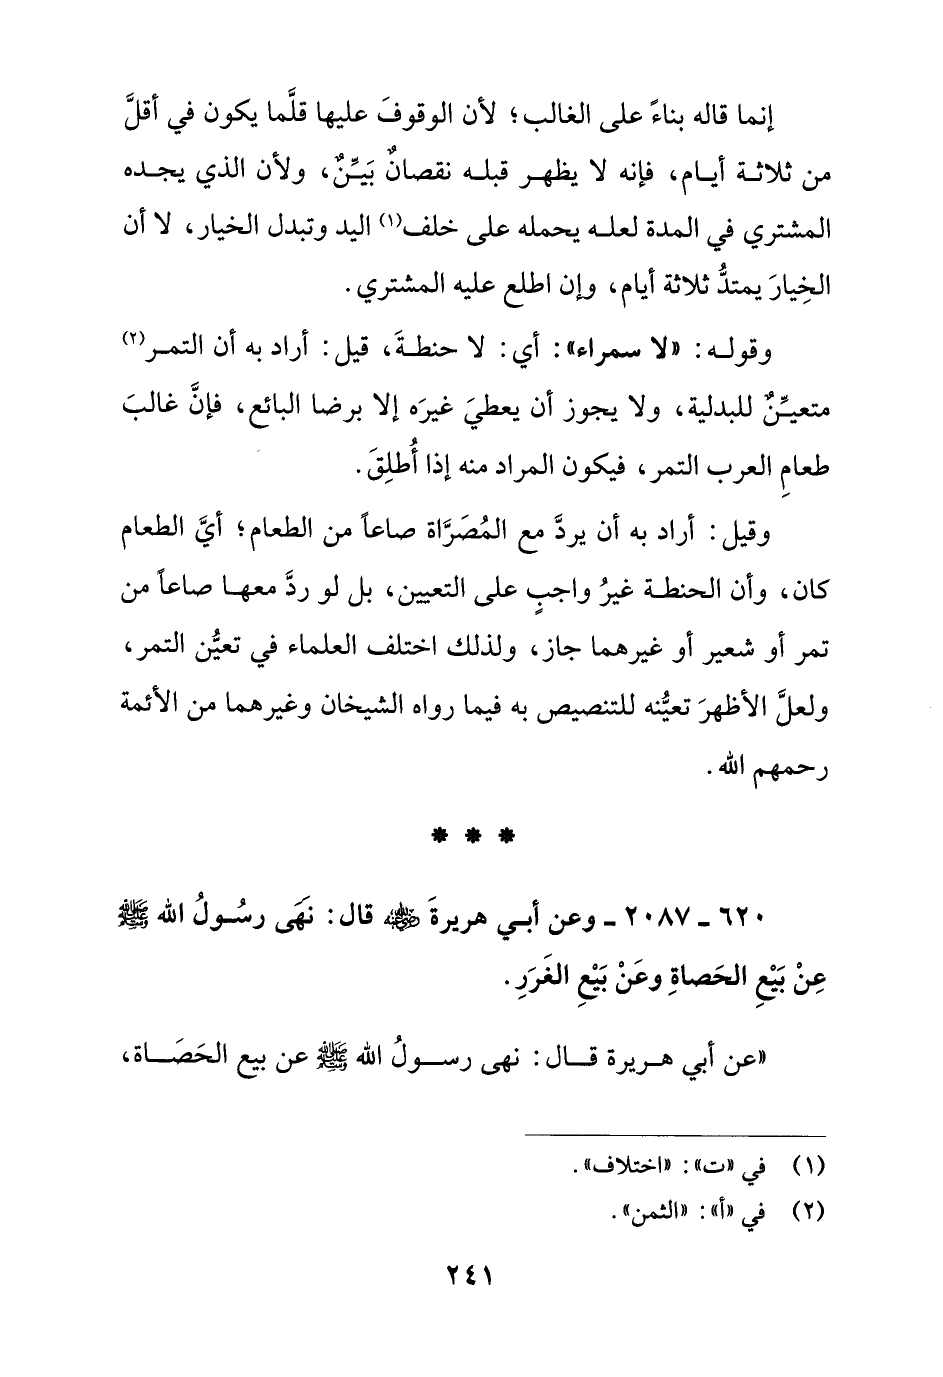 إنما قاله بناءً على الغالب؛ لأن الوقوفَ عليها قلَّما يكون في أقلَّ
من ثلاثة أيام، فإنه لا يظهر قبله نقصانٌ بَيِّنٌ، ولأن الذي يجده
المشتري في المدة لعله يحمله على خلف(١) اليد وتبدل الخيار، لا أن
الخِيارَ يمتدُّ ثلاثة أيام، وإن اطلع عليه المشتري.
وقوله: «لا سمراء»: أي: لا حنطةَ، قيل: أراد به أن التمر(٢)
متعيِّنٌ للبدلية، ولا يجوز أن يعطيَ غيرَه إلا برضا البائع، فإنَّ غالبَ
طعامِ العرب التمر، فيكون المراد منه إذا أُطلِقَ.
وقيل: أراد به أن يردَّ مع المُصَرَّاة صاعاً من الطعام؛ أيَّ الطعام
كان، وأن الحنطة غيرُ واجبٍ على التعيين، بل لو ردَّ معها صاعاً من
تمر أو شعير أو غيرهما جاز، ولذلك اختلف العلماء في تعيُّن التمر،
ولعلَّ الأظهرَ تعيُّنه للتنصيص به فيما رواه الشيخان وغيرهما من الأئمة
رحمهم الله.
* * *
٦٢٠ ـ ٢٠٨٧ ـ وعن أبي هريرةَ ﵁ قال: نَهَى رسُولُ الله ﷺ
عِنْ بَيْعِ الحَصاةِ وعَنْ بَيْعِ الغَرَرِ.
«عن أبي هريرة قال: نهى رسولُ الله ﷺ عن بيع الحَصَاة،
(١) في «ت»: «اختلاف».
(٢) في «أ»: «الثمن».
٢٤١